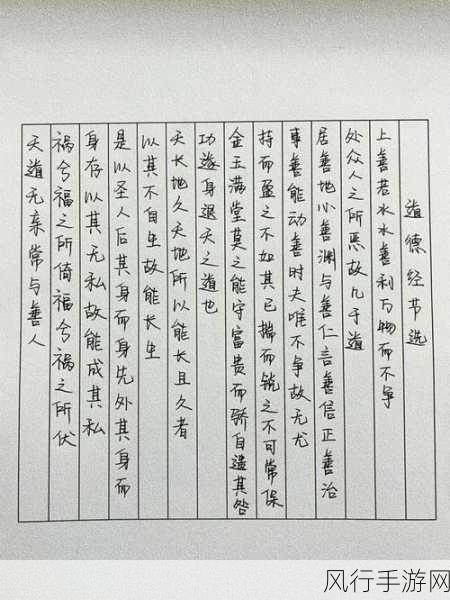 道德经节选
上善若水水善利万物而不争
处众人之所恶故几于道
居善地心善渊与善仁言善信正善治
事善能动善时夫唯不争故无尤
持而盈之不如其已揣而锐之不可常保
金玉满堂莫之能守富贵而骄自遗其咎
功遂身退天之道也
天长地久天地所以能长且久者
以其不自生故能长生
是以圣人后其身而身先外其身而
身存以其无私故能成其私
祸兮福之所倚福兮祸之所伏
天道无亲常与善人
风行手游网